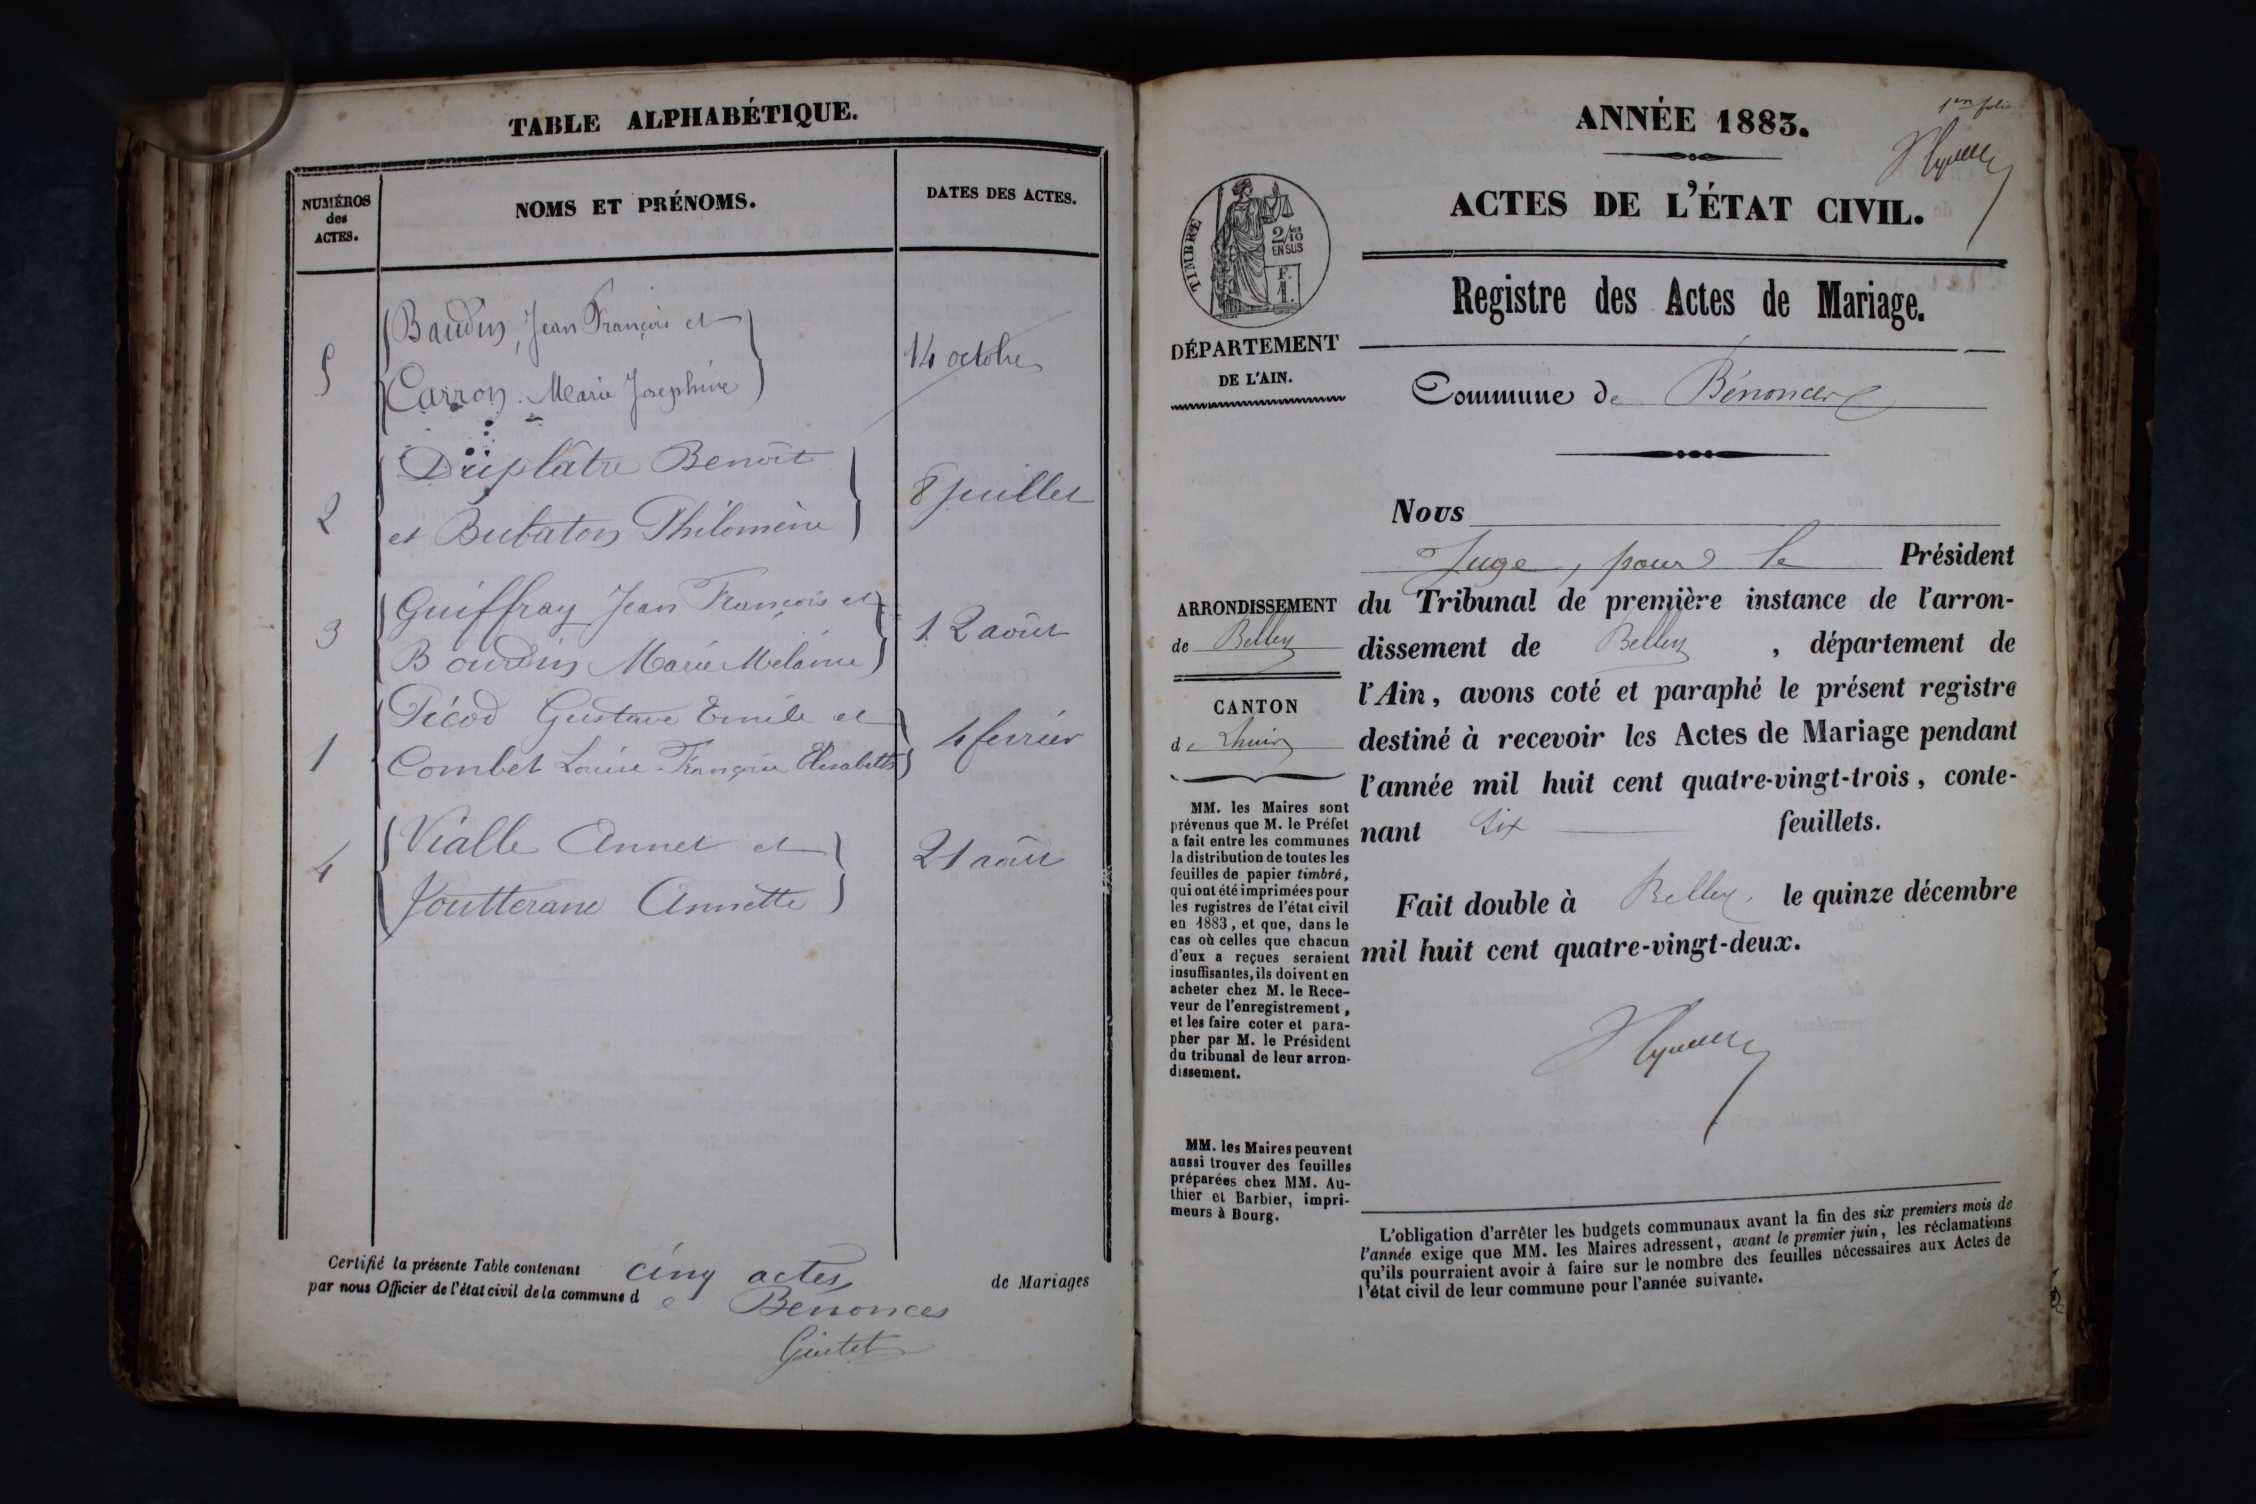 TABLE ALPHABÉTIQUE.
NUMÉROS
des
ACTES.
NOMS ET PRÉNOMS.
DATES DES ACTES.
5
Baudin, Jean François et
Carron Marie Josephine
14 octobre
2
Duplâtre Benoît
et Bubaton Philomène
8 juillet
3
Guiffray Jean François et
Bourdin Marie Mélanie
12 août
1
Pécod Gustave Emile et
Combet Louise Françoise Elisabeth
4 février
4
Vialle Annet et
Annette
21 août
Certifié la présente Table contenant cinq actes de Mariages
par nous Officier de l'état civil de la commune de Bénonces
Guitet
1er folio
ANNÉE 1883.
ACTES DE L'ÉTAT CIVIL.
TIMBRE
2/10
EN SUS
F.
1.
Registre des Actes de Mariage.
DÉPARTEMENT
DE L'AIN.
Commune de Bénonces
Nous
Juge, pour le Président
du Tribunal de première instance de l'arron-
dissement de Belley, département de
l'Ain, avons coté et paraphé le présent registre
destiné à recevoir les Actes de Mariage pendant
l'année mil huit cent quatre-vingt-trois, conte-
nant six feuillets.
Fait double à Belley, le quinze décembre
mil huit cent quatre-vingt-deux.
ARRONDISSEMENT
de Belley
CANTON
de Lhuis
MM. les Maires sont
prévenus que M. le Préfet
a fait entre les communes
la distribution de toutes les
feuilles de papier timbré,
qui ont été imprimées pour
les registres de l'état civil
en 1883, et que, dans le
cas où celles que chacun
d'eux a reçues seraient
insuffisantes, ils doivent en
acheter chez M. le Rece-
veur de l'enregistrement,
et les faire coter et para-
pher par M. le Président
du tribunal de leur arron-
dissement.
MM. les Maires peuvent
aussi trouver des feuilles
préparées chez MM. Au-
thier et Barbier, impri-
meurs à Bourg.
L'obligation d'arrêter les budgets communaux avant la fin des six premiers mois de
l'année exige que MM. les Maires adressent, avant le premier juin, les réclamations
qu'ils pourraient avoir à faire sur le nombre des feuilles nécessaires aux Actes de
l'état civil de leur commune pour l'année suivante.